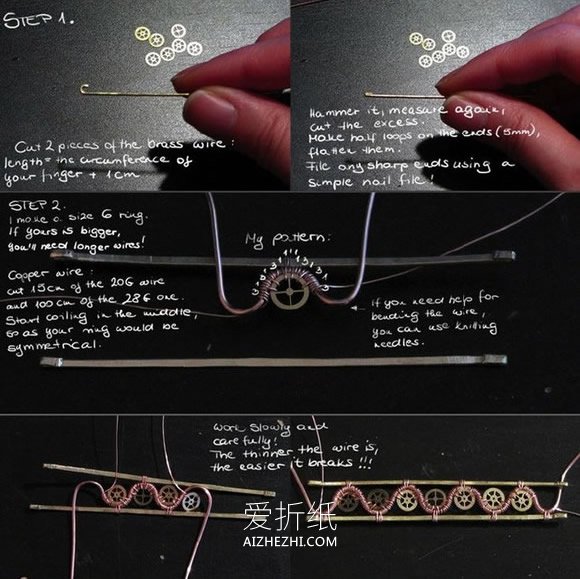 STEP 1.
Cut 2 pieces of the brass wire:
length = the circumference of
your finger + 1cm
Hammer it, measure again,
cut the excess.
Make half loops on the ends (5mm),
flatten them.
File any sharp ends using a
simple nail file!
STEP 2.
I make a size 6 ring.
If yours is bigger,
you'll need longer wires!
Copper wire:
cut 15cm of the 20G wire
and 100cm of the 28G one.
Start coiling in the middle,
so as your ring would be
symmetrical.
My pattern:
3 1 3 1 3 1 1 1 3 1 3 1 3
if you need help for
bending the wire,
you can use knitting
needles.
Work slowly and
carefully!
The thinner the wire is,
the easier it breaks!!!
爱折纸
AIZHEZHI.COM